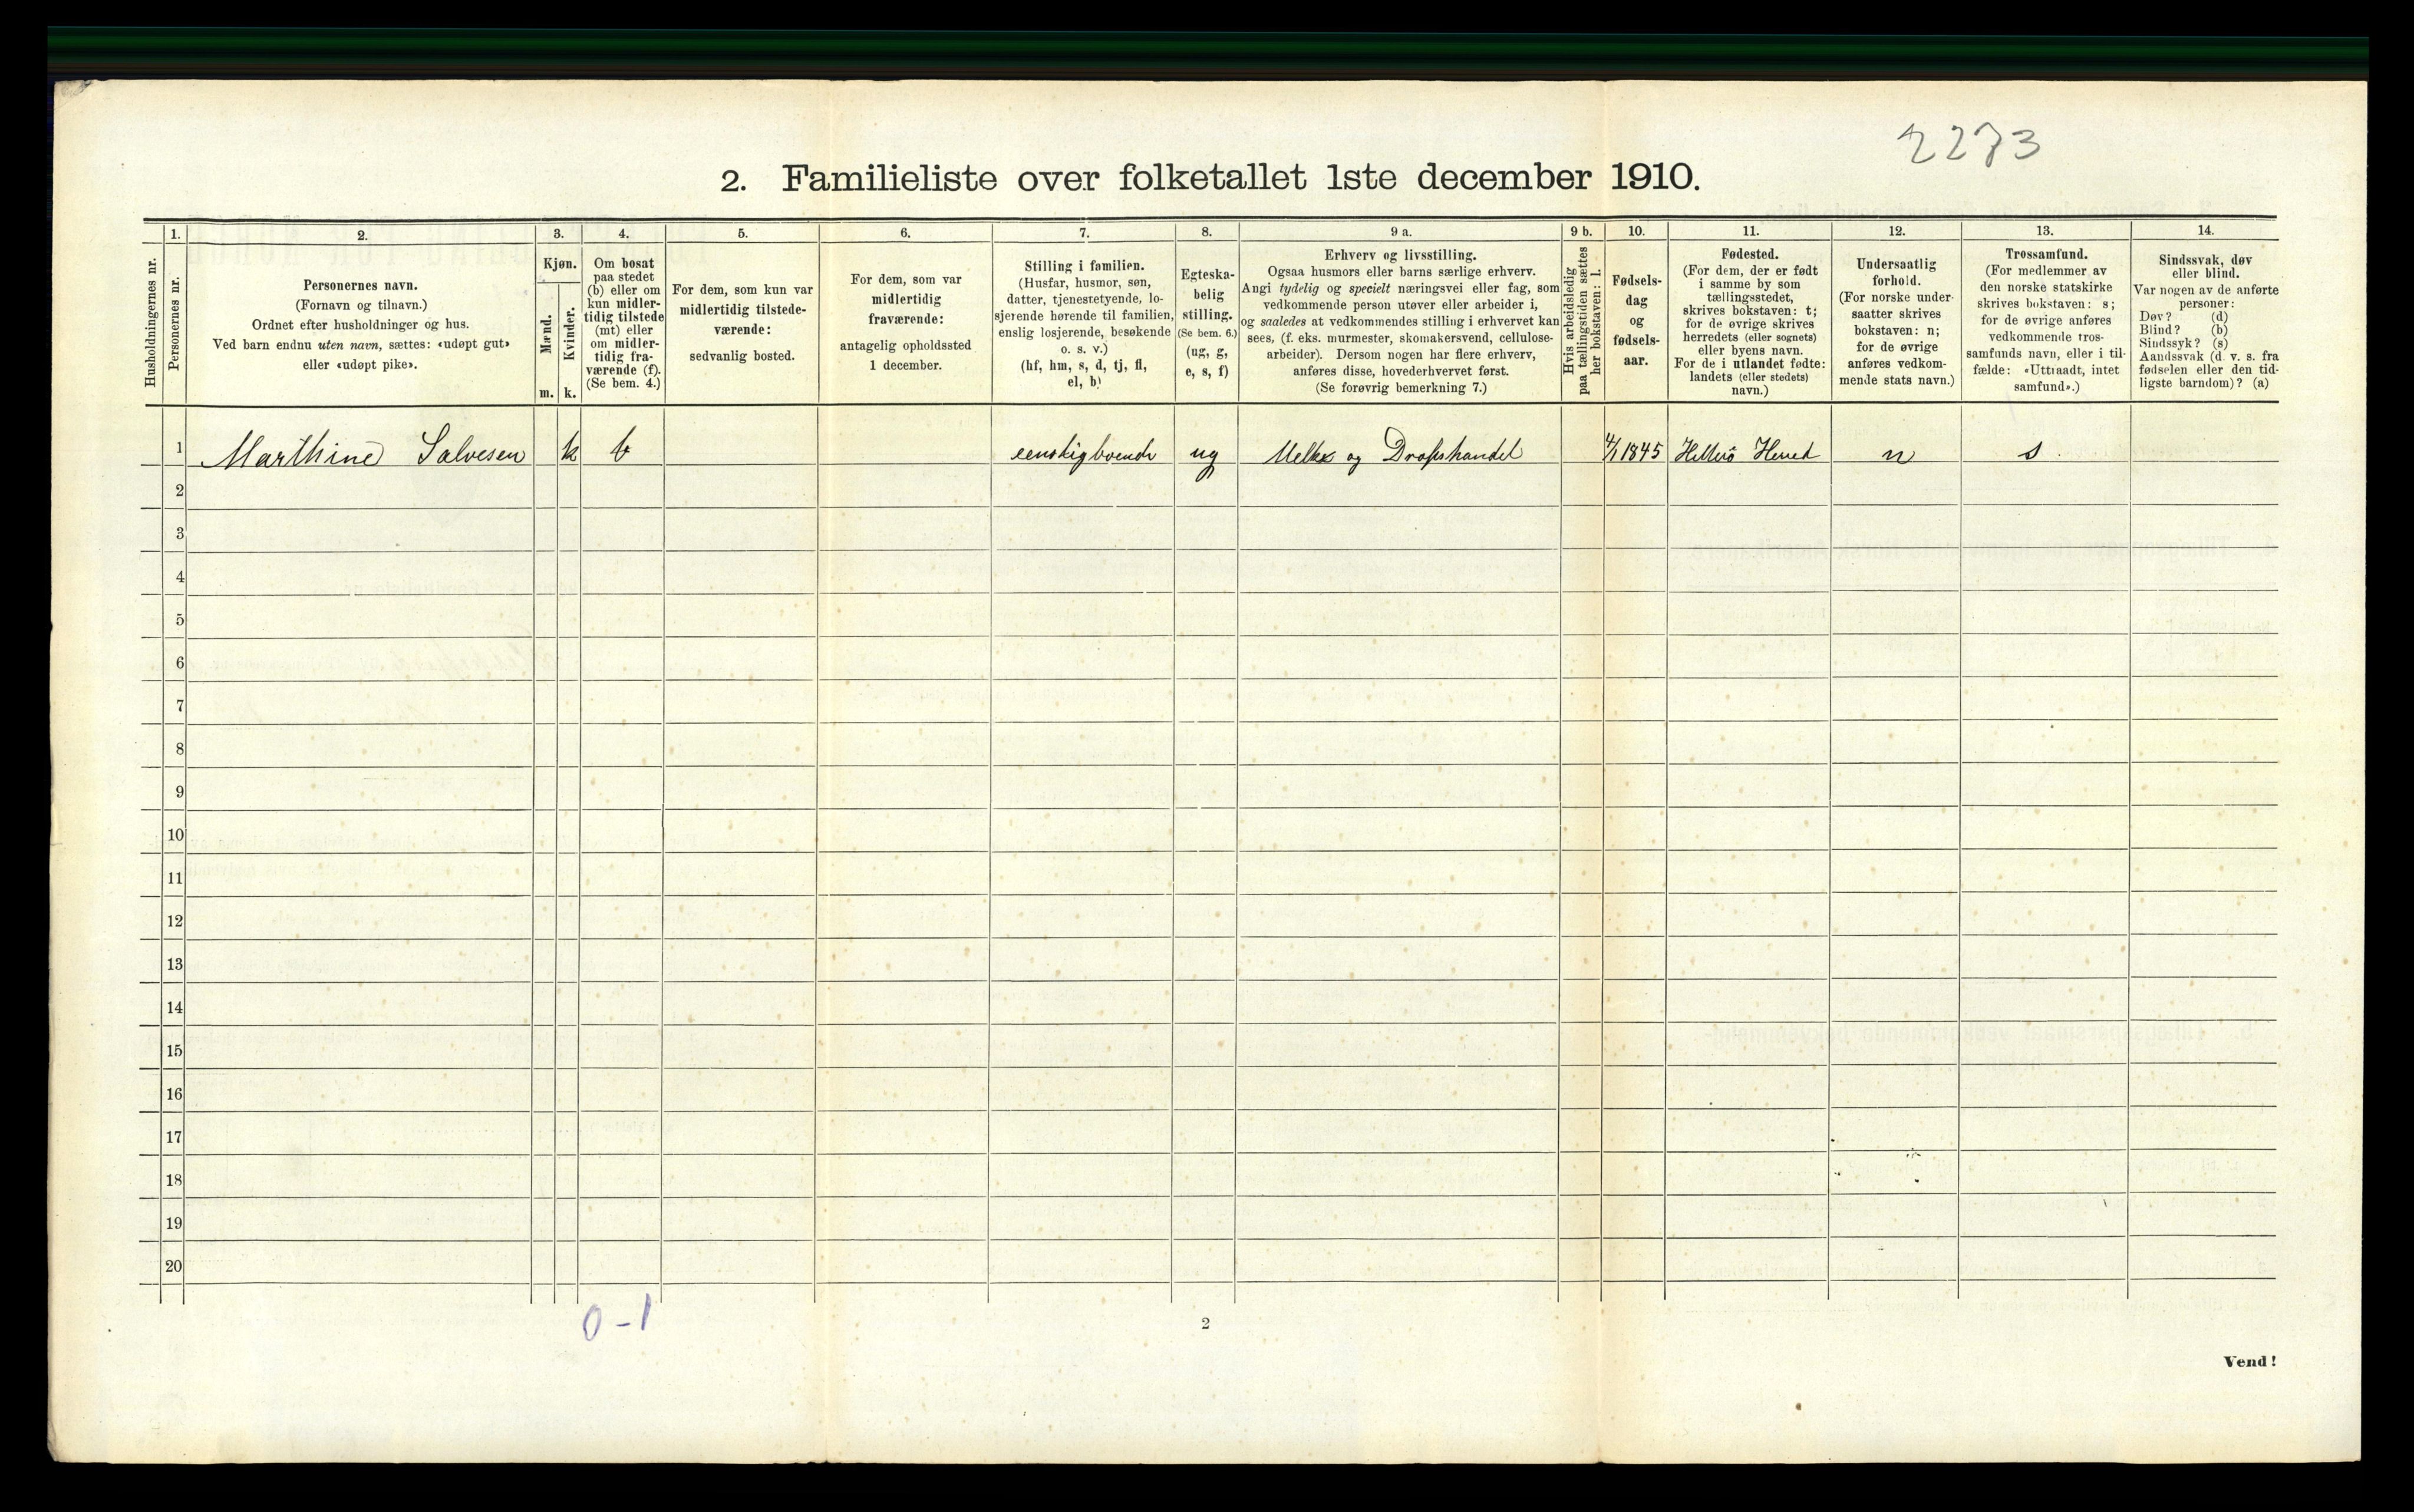 2273
2. Familieliste over folketallet 1ste december 1910.
Husholdningernes nr.
1.
Personernes nr.
2.
Personernes navn.
(Fornavn og tilnavn.)
Ordnet efter husholdninger og hus.
Ved barn endnu uten navn, sættes: «udøpt gut»
eller «udøpt pike».
3.
Kjøn.
Mænd.
Kvinder.
m. k.
4.
Om bosat
paa stedet
(b) eller om
kun midler-
tidig tilstede
(mt) eller
om midler-
tidig fra-
værende (f).
(Se bem. 4.)
5.
For dem, som kun var
midlertidig tilstede-
værende:
sedvanlig bosted.
6.
For dem, som var
midlertidig
fraværende:
antagelig opholdssted
1 december.
7.
Stilling i familien.
(Husfar, husmor, søn,
datter, tjenestetyende, lo-
sjerende hørende til familien,
enslig losjerende, besøkende
o. s. v.)
(hf, hm, s, d, tj, fl,
el, b)
8.
Egteska-
belig
stilling.
(Se bem. 6.)
(ug, g,
e, s, f)
9 a.
Erhverv og livsstilling.
Ogsaa husmors eller barns særlige erhverv.
Angi tydelig og specielt næringsvei eller fag, som
vedkommende person utøver eller arbeider i,
og saaledes at vedkommendes stilling i erhvervet kan
sees, (f. eks. murmester, skomakersvend, cellulose-
arbeider). Dersom nogen har flere erhverv,
anføres disse, hovederhvervet først.
(Se forøvrig bemerkning 7.)
9 b.
Hvis arbeidsledig
paa tællingstiden sættes
her bokstaven: l.
10.
Fødsels-
dag
og
fødsels-
aar.
11.
Fødested.
(For dem, der er født
i samme by som
tællingsstedet,
skrives bokstaven: t;
for de øvrige skrives
herredets (eller sognets)
eller byens navn.
For de i utlandet fødte:
landets (eller stedets)
navn.)
12.
Undersaatlig
forhold.
(For norske under-
saatter skrives
bokstaven: n;
for de øvrige
anføres vedkom-
mende stats navn.)
13.
Trossamfund.
(For medlemmer av
den norske statskirke
skrives bokstaven: s;
for de øvrige anføres
vedkommende tros-
samfunds navn, eller i til-
fælde: «Uttraadt, intet
samfund».)
14.
Sindssvak, døv
eller blind.
Var nogen av de anførte
personer:
Døv? (d)
Blind? (b)
Sindssyk? (s)
Aandssvak (d. v. s. fra
fødselen eller den tid-
ligste barndom)? (a)
1 Marthine Salvesen k b eenskigboende ug Melke og Dropshandel 4/1 1845 Herred n s
2
3
4
5
6
7
8
9
10
11
12
13
14
15
16
17
18
19
20
0-1
2
Vend!